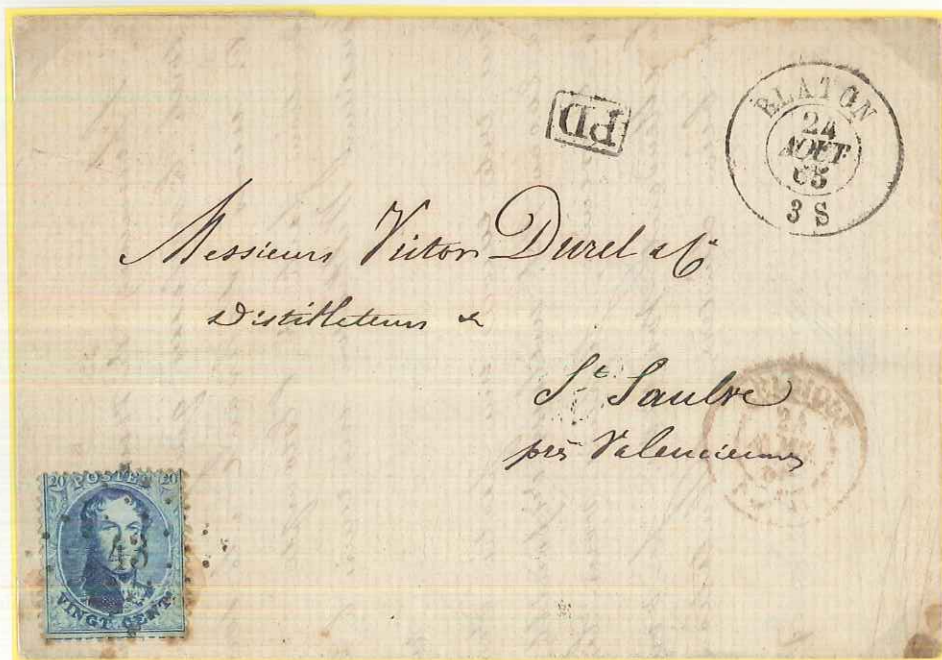 PD
BLATON
24
AOUT
65
3 S
Messieurs Victor Durel & Cie
Distillateurs &
St Saulve
près Valenciennes
24
20 POSTES 20
43
VINGT CENT.